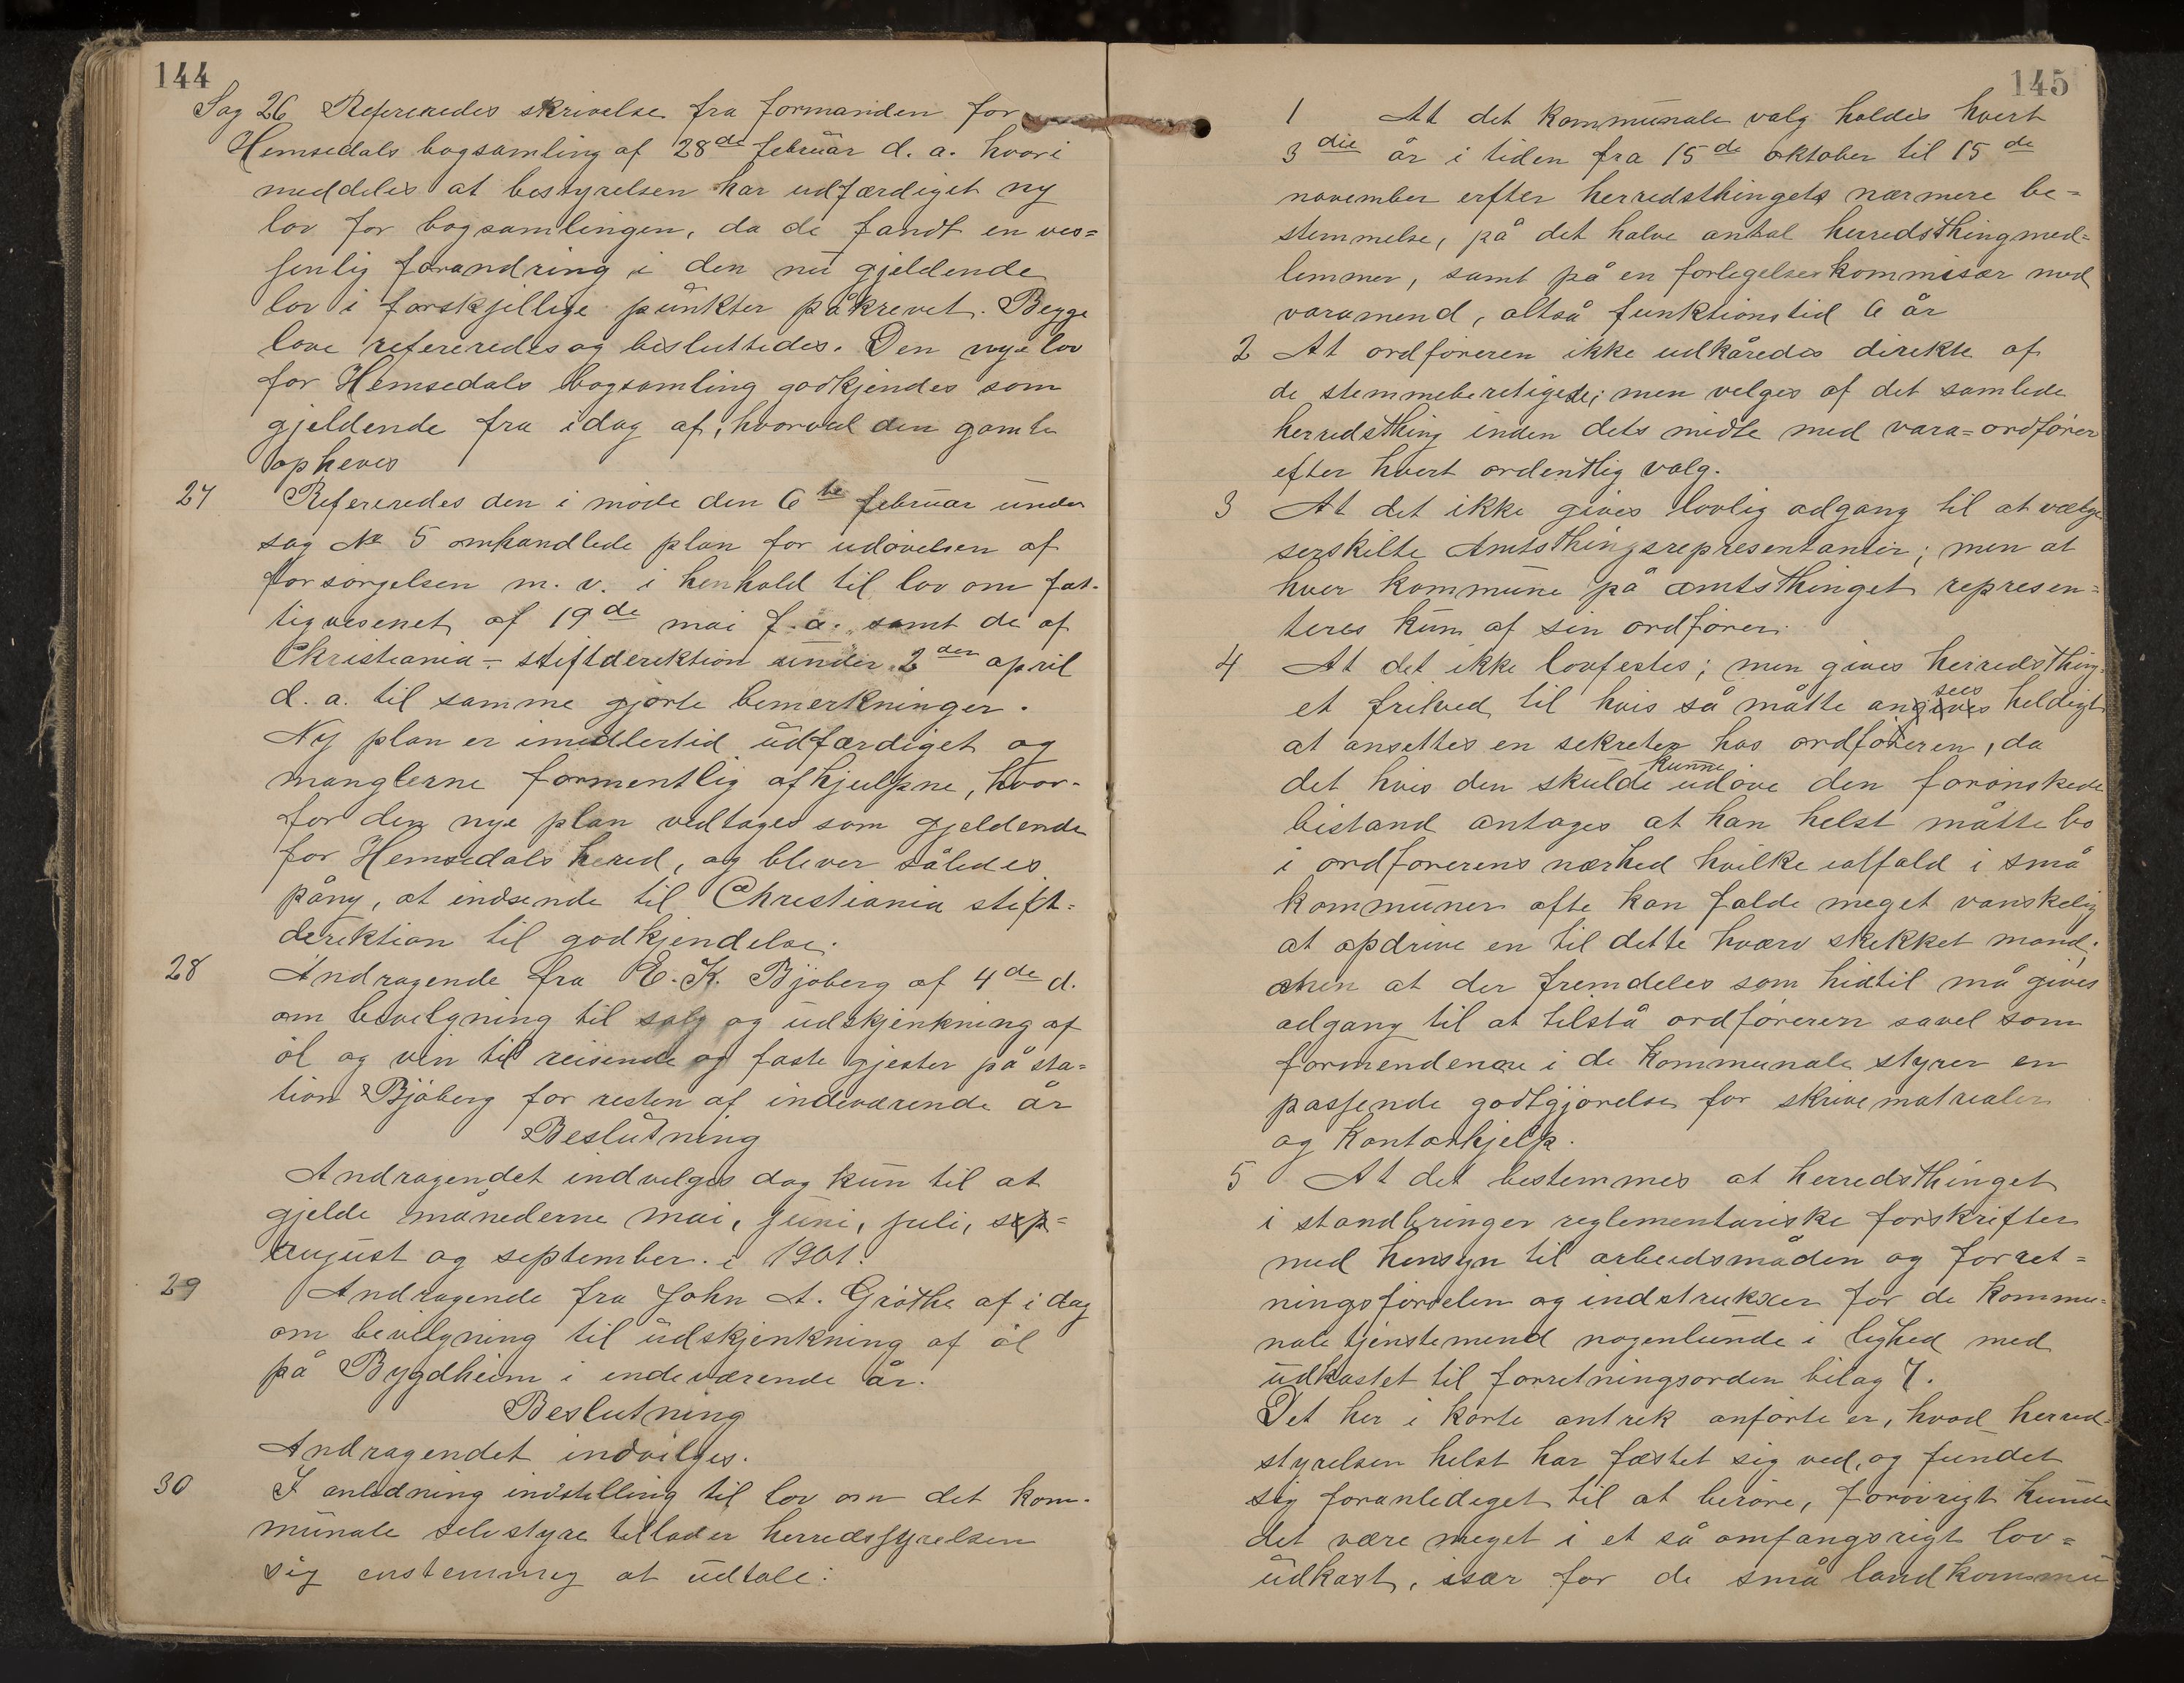 144
Sag 26 Refereredes skrivelse fra formanden for
Hemsedals bogsamling af 28de februar d. a. hvori
meddeles at bestyrelsen har udfærdiget ny
lov for bogsamlingen, da de fandt en ves=
senlig forandring i den nu gjeldende
lov i forskjellige punkter påkrevet. Begge
love refereredes og besluttedes. Den nye lov
for Hemsedals bogsamling godkjendes som
gjeldende fra idag af, hvorved den gamle
opheves
27 Refereredes den i møde den 6te februar under
sag No 5 omhandlede plan for udøvelsen af
forsørgelsen m. v. i henhold til lov om fat-
tigvesenet af 19de mai f. a. samt de af
Christiania - stiftderektion under 2den april
d. a. til samme gjorte bemerkninger.
Ny plan er imidlertid udfærdiget og
manglerne formentlig afhjulpne, hvor-
for den nye plan vedtages som gjeldende
for Hemsedals hered, og blever således
påny, at indsende til Christiania stift=
derektion til godkjendelse.
28 Andragende fra E. K. Bjøberg af 4de d.
om bevilgning til salg og udskjenkning af
øl og vin til reisende og faste gjester på sta=
tion Bjøberg for resten af indeværende år
Beslutning
Andragendet indvelges dog kun til at
gjelde månederne mai, juni, juli, sep=
august og september i 1901.
29 Andragende fra John A. Grøthe af i dag
om bevilgning til udskjenkning af øl
på Bygdheim i endeværende år.
Beslutning
Andragendet indvilges.
30 I anledning indstelling til lov om det kom-
munale selvstyre tellader herredssyrelsen
sig enstemmig at udtale:
145
1 At det kommunale valg holdes hvert
3die år i tiden fra 15de oktober til 15de
november erfter herredsthingets nærmere be=
stemmelse, på det halve antal herredsthingmed=
lemmer, samt på en forlegelseskommisær med
varamend, altså funktionstid 6 år
2 At ordføreren ikke udkåredes direkte af
de stemmeberetigede; men velges af det samlede
herredsthing inden dets midte med vara=ordfører
efter hvert ordentlig valg.
3 At det ikke gives lovlig adgang til at vælge
serskilte Amtsthingsrepresentanter; men at
hver kommune på amtsthinget represen=
teres kun af sin ordfører.
4 At det ikke lovfestes; men gives herredsthing-
et frihed til hvis så måtte angives sees heldigt
at ansettes en sekretær hos ordføreren, da
det hvis den skulde kunne udøve den forønskede
bistand antages at han helst måtte bo
i ordførerens nærhed hvilke ialfald i små
kommuner ofte kan falde meget vanskelig
at opdrive en til dette hværv skekket mand;
men at der fremdeles som hidtil må gives
adgang til at tilstå ordføreren savel som
formendene i de kommunale styrer en
passende godtgjørelse for skrivematrealer
og kontorhjelp.
5 At det bestemmes at herredsthinget
i standbringer reglementariske forskrifter
med hensyn til arbeidsmåden og forret=
ningsfordelen og indstrukser for de kommu=
nale tjenstemend nogenlunde i lighed med
udkastet til forretningsorden bilag 7.
Det her i korte antrek anførte er, hvad herred=
styrelsen helst har fæstet sig ved, og fundet
sig foranlediget til at berøre, forøvrigt kunde
det være meget i et så omfangsrigt lov=
udkast, især for de små landkommu